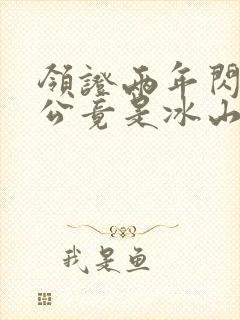 領證兩年閃
公竟是冰山
我是鱼